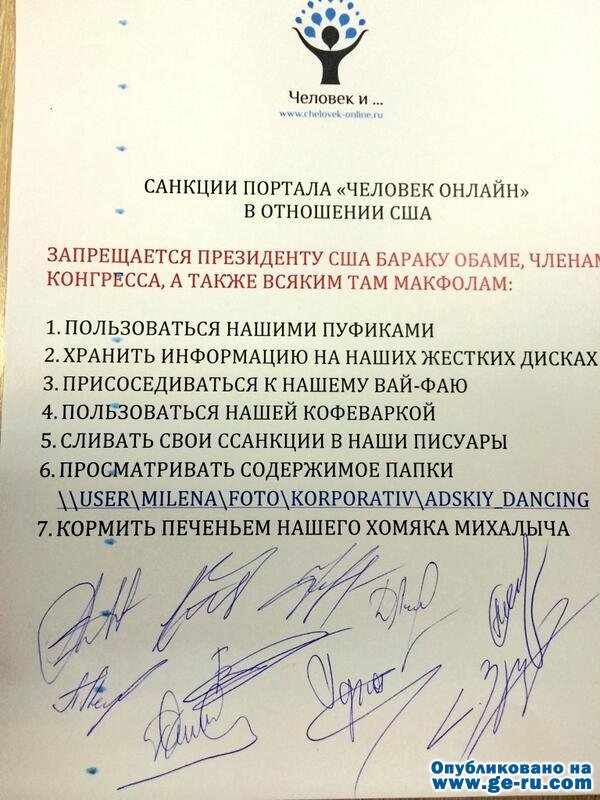 Человек и ...
www.chelovek-online.ru
САНКЦИИ ПОРТАЛА «ЧЕЛОВЕК ОНЛАЙН»
В ОТНОШЕНИИ США
ЗАПРЕЩАЕТСЯ ПРЕЗИДЕНТУ США БАРАКУ ОБАМЕ, ЧЛЕНАМ
КОНГРЕССА, А ТАКЖЕ ВСЯКИМ ТАМ МАКФОЛАМ:
1. ПОЛЬЗОВАТЬСЯ НАШИМИ ПУФИКАМИ
2. ХРАНИТЬ ИНФОРМАЦИЮ НА НАШИХ ЖЕСТКИХ ДИСКАХ
3. ПРИСОСЕДИВАТЬСЯ К НАШЕМУ ВАЙ-ФАЮ
4. ПОЛЬЗОВАТЬСЯ НАШЕЙ КОФЕВАРКОЙ
5. СЛИВАТЬ СВОИ ССАНКЦИИ В НАШИ ПИСУАРЫ
6. ПРОСМАТРИВАТЬ СОДЕРЖИМОЕ ПАПКИ
\\USER\MILENA\FOTO\KORPORATIV\ADSKIY_DANCING
7. КОРМИТЬ ПЕЧЕНЬЕМ НАШЕГО ХОМЯКА МИХАЛЫЧА
Опубликовано на
www.ge-ru.com